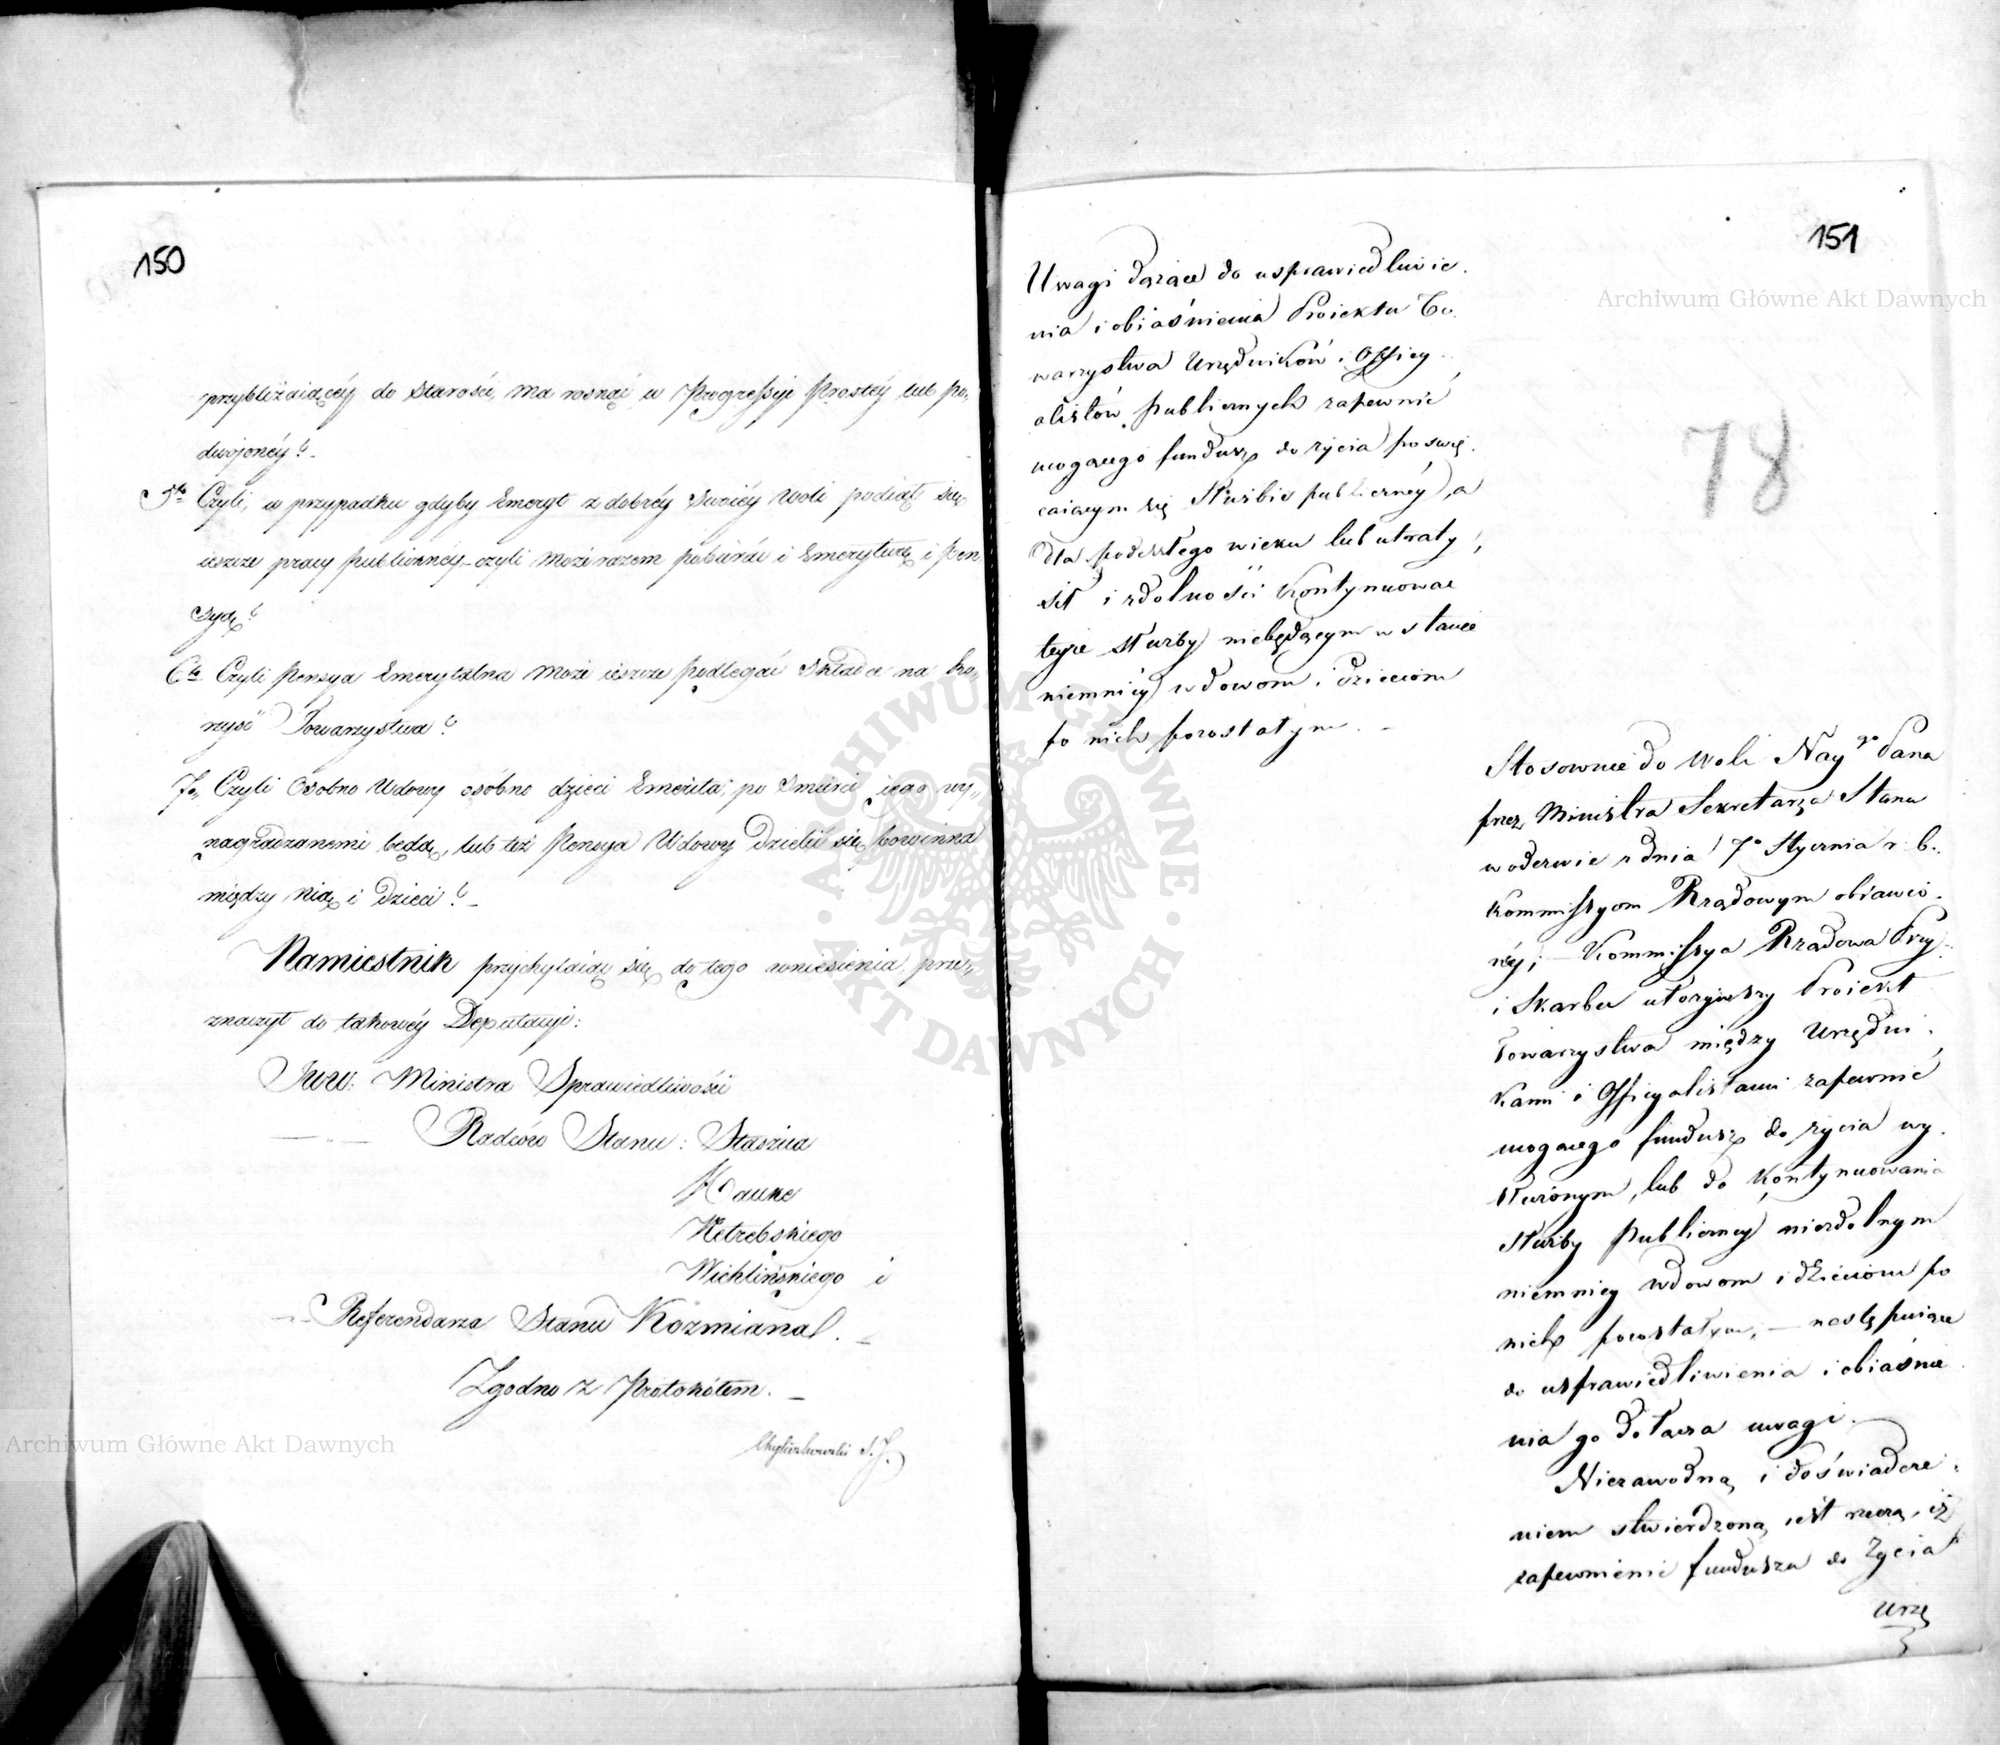 150
przybliżaiącéy do Starości, ma rosnąć w Progressyi Prostéy lub po„
dwojonéy? _
5to Czyli, w przypadku gdyby Emeryt z dobréy swoiéy woli podiął się
ieszcze pracy publicznéy _ czyli może razem pobierać i Emeryturę i Pen
syą?
6to Czyli Pensya Emerytalna może ieszcze podlegać składce na ko„
rzyść Towarzystwa?
7o Czyli Osobno Wdowy osóbno dzieci Emerita, po śmierci iego wy„
nagradzanemi będą, lub téż Pensya Wdowy Dzielić się powinna
między Nią i Dzieci? _
Namiestnik przychylaiąc się do tego wniesienia prze„
znaczył do takowéy Deputacyi:
JWW: Ministra Sprawiedliwości
Radców Stanu: Staszica
Hauke
Netrebskiego
Wichlińskiego i
Referendarza Stanu Kozmiana. _
Zgodno z Protokółem. _
151
Archiwum Główne Akt Dawnych
Uwagi dążące do usprawiedliwie.
nia i obiaśnienia Proiektu To.
warzystwa Urzędników i Officy.
alistów publicznych zapewnić
mogącego fundusz do życia poswię.
caiącym się Służbie publicznéy, a
dla podeszłego wieku lub utraty
sił i zdolności kontynuować
teyże służby niebędącym w stanie
niemniéy wdowom i dzieciom
po nich pozostałym. _
78
Stosownie do woli Nayo Pana
przez Ministra Sekretarza Stanu
w odezwie z dnia 7o Stycznia r. b.
Kommissyom Rządowym obiawio.
néy; _ Kommissya Rządowa Przy:
i Skarbu ułożywszy Proiekt
Towarzystwa między Urzędni.
kami i Officyalistami zapewnić
mogącego fundusz do życia wy.
służonym, lub do kontynuowania
służby publiczney niezdolnym
niemniey wdowom i dzieciom po
nich pozostałym, _ następuiące
do usprawiedliwienia i obiaśnie
nia go dołącza uwagi. _
Niezawodną i doświadcze.
niem stwierdzoną iest rzeczą, iż
zapewnienie funduszu do życia
Urzę
ARCHIWUM GŁÓWNE
AKT DAWNYCH
Archiwum Główne Akt Dawnych